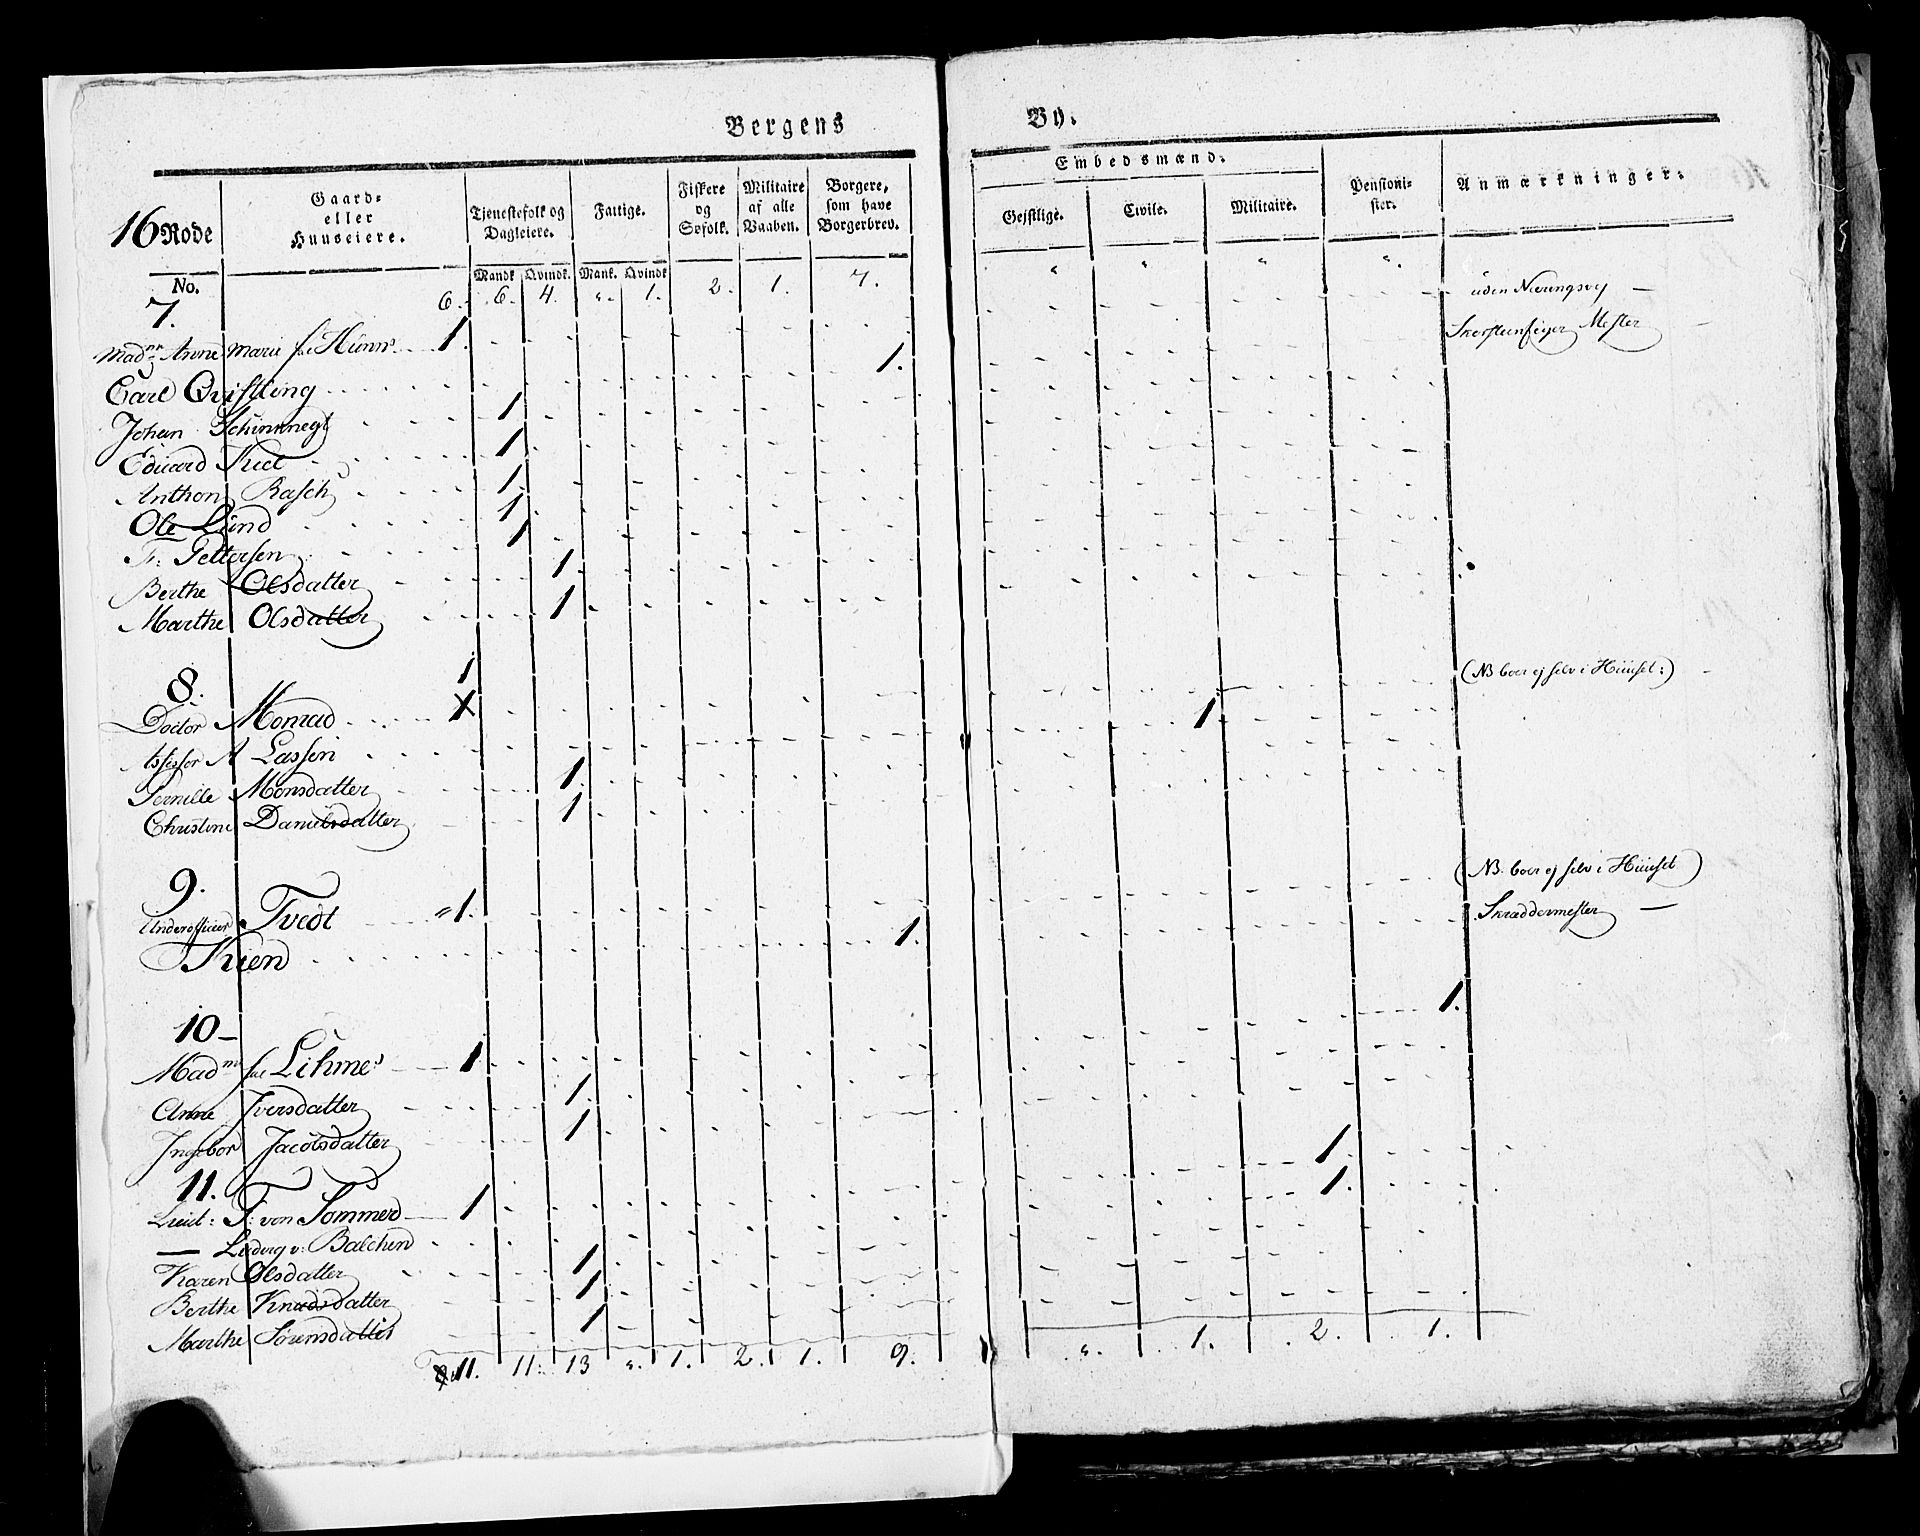 Bergens By.
16 Rode
No.
Gaard- eller Huuseiere.
Tjenestefolk og Dagleiere. Mandk Qvindk.
Fattige. Mank. Qvindk
Fiskere og Søfolk.
Militaire af alle Vaaben.
Borgere, som have Borgerbrev.
Embedsmænd.
Gejstlige. Civile. Militaire.
Pensionister.
Anmærkninger.
6. 6. 4. ". 1. 2. 1. 7. " " " ".
7.
Madme Anne Marie sal Hünns 1. uden Næringsvej
Carl Qvistling 1. Skorsteenfejer Mester
Johan 1
Eduard 1
Anthon Rasch 1.
Ole Lünd 1
Fr: Pettersen 1
Berthe Olsdatter 1
Marthe Olsdatter 1
8. 1
Doctor Monrad X (NB boer ej selv i Hüüset:)
Assessor A Lassen 1
Pernille Monsdatter 1
Christine Danielsdatter 1
9.
Underofficier Tvedt "1. (NB. boer ej selv i Hüüset)
Krien 1. Skræddermester
10
Madme sal Lihmes 1 1.
Anne Iversdatter 1
Ingebor Jacobsdatter 1
11.
Lieut: F: von Sommer 1 1
— Ludvig v: Balchen 1.
Karen Olsdatter 1
Berthe Knudsdatter 1
Marthe Sørensdatter 1
11. 11. 13 ". 1. 2. 1. 9. ". 1. 2. 1.